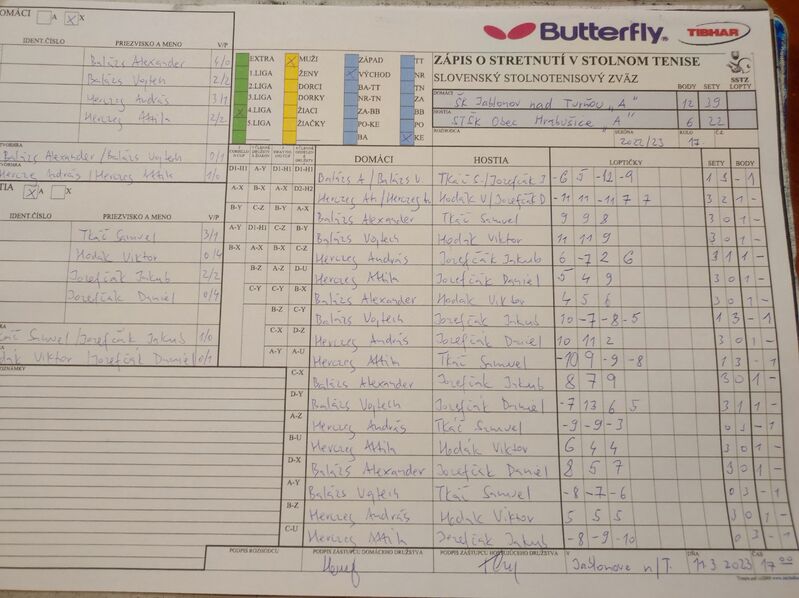 DOMÁCI A X
IDENT.ČÍSLO PRIEZVISKO A MENO V/P
Balázs Alexander 4/0
Balázs Vojtech 2/2
Herczeg András 3/1
Herczeg Attila 2/2
Balázs Alexander/Balázs Vojtech 0/1
Herczeg András/Herczeg Attila 1/0
A X
IDENT.ČÍSLO PRIEZVISKO A MENO V/P
Tkáč Samuel 3/1
Hodák Viktor 0/4
Jozefčák Jakub 2/2
Jozefčák Daniel 0/4
Samuel/Jozefčák Jakub 1/0
Viktor/Jozefčák Daniel 0/1
Butterfly TIBHAR
ZÁPIS O STRETNUTÍ V STOLNOM TENISE
SLOVENSKÝ STOLNOTENISOVÝ ZVÄZ
SSTZ
EXTRA MUŽI ZÁPAD TT
1.LIGA ŽENY VÝCHOD NR
2.LIGA DORCI BA-TT TN
3.LIGA DORKY NR-TN ZA
4.LIGA ŽIACI ZA-BB BB
5.LIGA ŽIAČKY PO-KE PO
BA KE
DOMÁCI BODY SETY LOPTY
ŠK Jablonov nad Turňou "A" 12 39
HOSTIA
STŠK Obec Hrabušice "A" 6 22
ROZHODCA SEZÓNA KOLO Č.
2022/23 17.
DOMÁCI HOSTIA LOPTIČKY SETY BODY
D1-H1 A-Y D1-H1 D1-H1 Balázs A/Balázs V Tkáč S/Jozefčák J -6 5 -12 -9 1 3 - 1
A-X B-X A-X D2-H2 Herczeg At/Herczeg An Hodák V/Jozefčák D -11 11 -11 7 7 3 2 1 -
B-Y C-Z B-Y A-X Balázs Alexander Tkáč Samuel 9 9 8 3 0 1 -
A-Y D1-H1 C-Z B-Y Balázs Vojtech Hodák Viktor 11 11 9 3 0 1 -
B-X A-X A-X C-Z Herczeg András Jozefčák Jakub 6 -7 2 6 3 1 1 -
B-Z A-Z D-U Herczeg Attila Jozefčák Daniel 5 4 9 3 0 1 -
C-Y C-Y B-X Balázs Alexander Hodák Viktor 4 5 6 3 0 1 -
B-Z C-Y Balázs Vojtech Jozefčák Jakub 10 -7 -8 -5 1 3 - 1
C-X D-Z Herczeg András Jozefčák Daniel 10 11 2 3 0 1 -
A-Y A-U Herczeg Attila Tkáč Samuel -10 9 -9 -8 1 3 - 1
C-X Balázs Alexander Jozefčák Jakub 8 7 9 3 0 1 -
D-Y Balázs Vojtech Jozefčák Daniel -7 13 6 5 3 1 1 -
A-Z Herczeg András Tkáč Samuel -9 -9 -3 0 3 - 1
B-U Herczeg Attila Hodák Viktor 6 4 4 3 0 1 -
D-X Balázs Alexander Jozefčák Daniel 8 5 7 3 0 1 -
A-Y Balázs Vojtech Tkáč Samuel -8 -7 -6 0 3 - 1
B-Z Herczeg András Hodák Viktor 5 5 5 3 0 1 -
C-U Herczeg Attila Jozefčák Jakub -8 -9 -10 0 3 - 1
PODPIS ROZHODCU PODPIS ZÁSTUPCU DOMÁCEHO DRUŽSTVA PODPIS ZÁSTUPCU HOSŤUJÚCEHO DRUŽSTVA V DŇA ČAS
Jablonove n/T. 11.3 2023 17 00